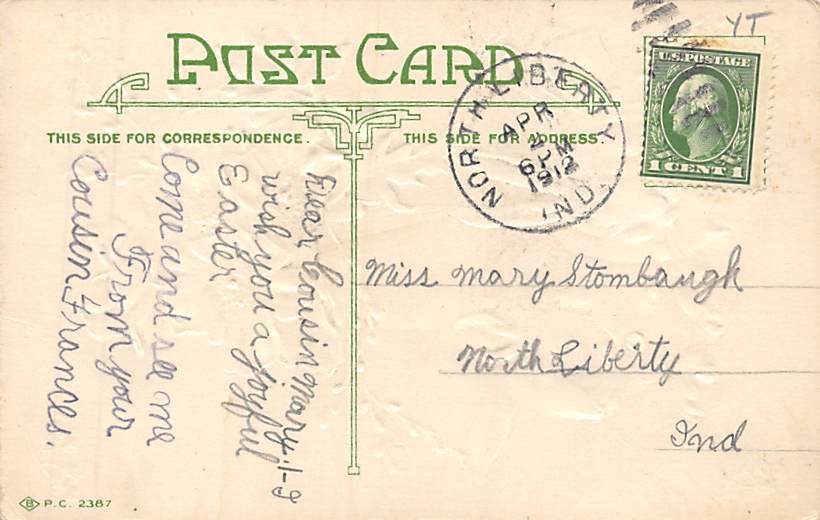 YT
POST CARD
THIS SIDE FOR CORRESPONDENCE.
THIS SIDE FOR ADDRESS.
NORTH LIBERTY
APR
6 PM
1912
IND.
U.S. POSTAGE
1 CENT 1
Dear Cousin Mary:- I
wish you a joyful
Easter
Come and see me
From your
Cousin Frances.
Miss Mary Stombaugh
North Liberty
Ind
B P.C. 2387